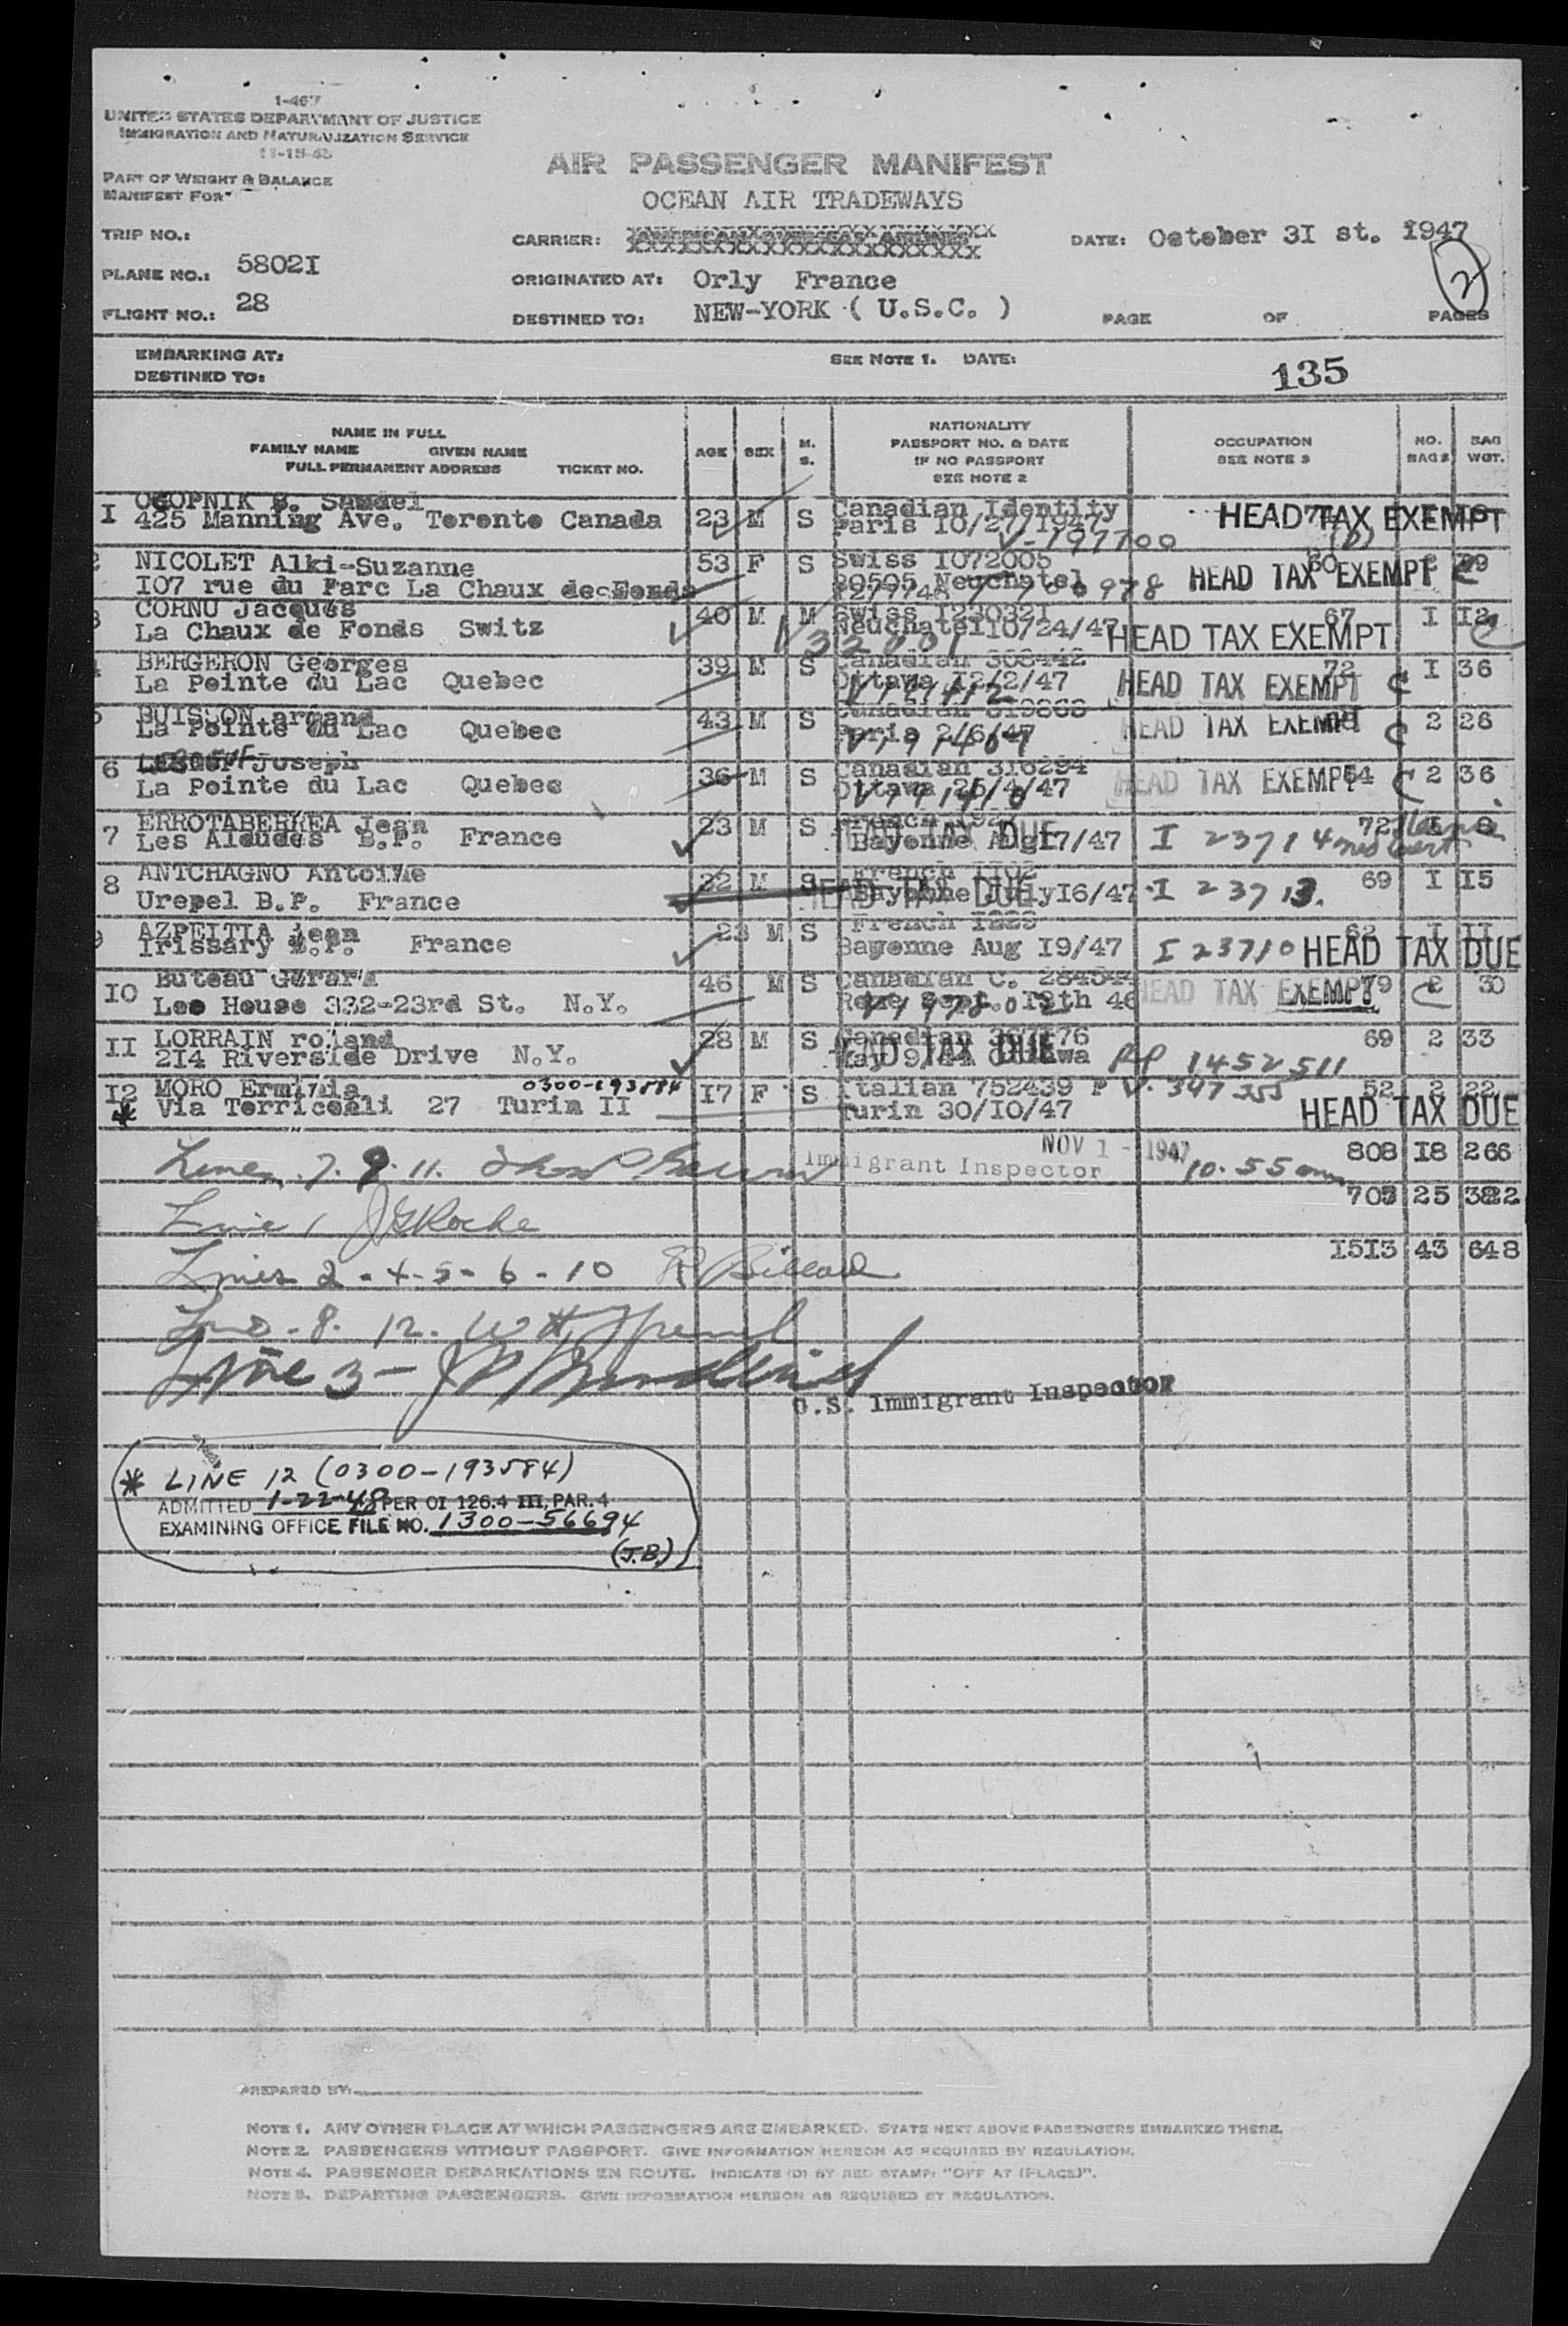 1-467
UNITED STATES DEPARTMENT OF JUSTICE
IMMIGRATION AND NATURALIZATION SERVICE
11-15-45
PART OF WEIGHT & BALANCE
MANIFEST FOR
AIR PASSENGER MANIFEST
OCEAN AIR TRADEWAYS
TRIP NO.:
CARRIER: AMERICAN OVERSEAS AIRLINES
DATE: October 3I st. 1947
PLANE NO.: 5802I
ORIGINATED AT: Orly France
2
FLIGHT NO.: 28
DESTINED TO: NEW-YORK ( U.S.C. )
PAGE OF PAGES
EMBARKING AT: SEE NOTE 1. DATE:
DESTINED TO:
135
NAME IN FULL
FAMILY NAME GIVEN NAME
FULL PERMANENT ADDRESS TICKET NO.
AGE SEX M. S.
NATIONALITY
PASSPORT NO. & DATE
IF NO PASSPORT
SEE NOTE 2
OCCUPATION
SEE NOTE 3
NO. BAGS
BAG WGT.
I OGOPNIK S. Samuel 23 M S Canadian Identity HEAD TAX EXEMPT
425 Manning Ave. Toronto Canada Paris IO/27/1947
V-197700
NICOLET Alki-Suzanne 53 F S Swiss IO72005 HEAD TAX EXEMPT
IO7 rue du Parc La Chaux de Fonds Neuchatel
CORNU Jacques 40 M M Swiss I230321 67 I I2
La Chaux de Fonds Switz Neuchatel IO/24/47 HEAD TAX EXEMPT
BERGERON Georges 39 M S Canadian 308442 72 I 36
La Pointe du Lac Quebec Ottawa I2/2/47 HEAD TAX EXEMPT C
BUISSON armand 43 M S Canadian 319868 2 26
La Pointe du Lac Quebec Paris 2/6/47 HEAD TAX EXEMPT C
6 Joseph 36 M S Canadian 316294 64 2 36
La Pointe du Lac Quebec Ottawa 25/4/47 HEAD TAX EXEMPT C
7 ERROTABEREA Jean 23 M S French HEAD TAX DUE 72
Les Aldudes B.P. France Bayonne Aug I7/47 I 23714
8 ANTCHAGNO Antoine 22 M S French HEAD TAX DUE 69 I I5
Urepel B.P. France Bayonne July I6/47 I 23713.
AZPEITIA jean 23 M S French 62 I II
Irissary B.P. France Bayonne Aug I9/47 I 23710 HEAD TAX DUE
IO Buteau Gerard 46 M S Canadian C. 79 2 30
Leo House 332-23rd St. N.Y. Rome Sept. HEAD TAX EXEMPT
II LORRAIN roland 28 M S Canadian HEAD TAX DUE 69 2 33
2I4 Riverside Drive N.Y. May Ottawa RP 1452511
I2 MORO 0300-193584 I7 F S Italian 752439 P V. 347355 52 2 22
* Via Torricelli 27 Turin II Turin 30/IO/47 HEAD TAX DUE
NOV 1 - 1947 808 I8 266
Lines 7. 9. 11. Immigrant Inspector 10.55 am
25
Line 1 JGRoche
I5I3 43 648
Lines 2 - 4 - 5 - 6 - 10
Line - 8. 12.
Line 3 -
U.S. Immigrant Inspector
* LINE 12 (0300-193584)
ADMITTED 1-22-48 PER OI 126.4 III, PAR. 4
EXAMINING OFFICE FILE NO. 1300-56694
(J.B.)
PREPARED BY:
NOTE 1. ANY OTHER PLACE AT WHICH PASSENGERS ARE EMBARKED. STATE NEXT ABOVE PASSENGERS EMBARKED THERE.
NOTE 2. PASSENGERS WITHOUT PASSPORT. GIVE INFORMATION HEREON AS REQUIRED BY REGULATION.
NOTE 4. PASSENGER DEBARKATIONS EN ROUTE. INDICATE (D) BY RED STAMP: "OFF AT (PLACE)".
NOTE 5. DEPARTING PASSENGERS. GIVE INFORMATION HEREON AS REQUIRED BY REGULATION.